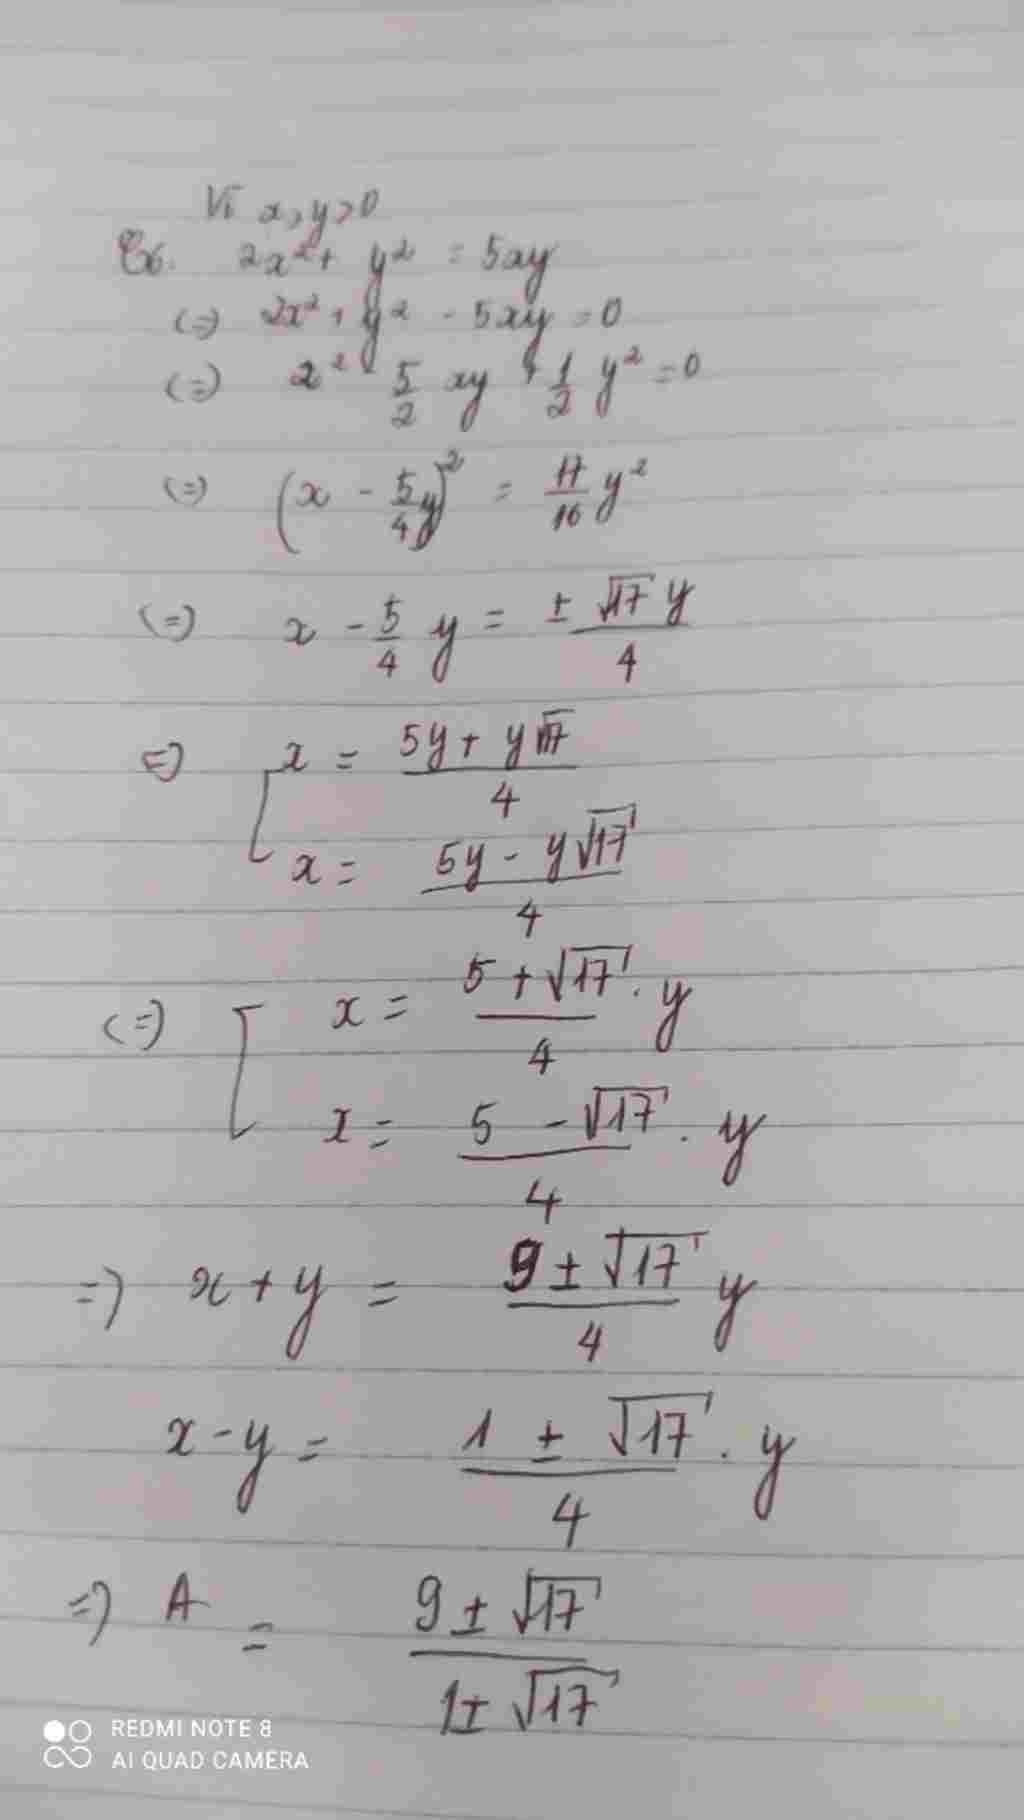 Vì x > y > 0
Có. 2x² + y² = 5xy
(=) 2x² + y² - 5xy = 0
(=) x² - 5/2 xy + 1/2 y² = 0
(=) (x - 5/4 y)² = 17/16 y²
(=) x - 5/4 y = ± √17 y / 4
=) [ x = (5y + y√17) / 4
x = (5y - y√17) / 4
(=) [ x = (5 + √17) / 4 . y
x = (5 - √17) / 4 . y
=) x + y = (9 ± √17) / 4 y
x - y = (1 ± √17) / 4 . y
=) A = (9 ± √17) / (1 ± √17)
REDMI NOTE 8
AI QUAD CAMERA